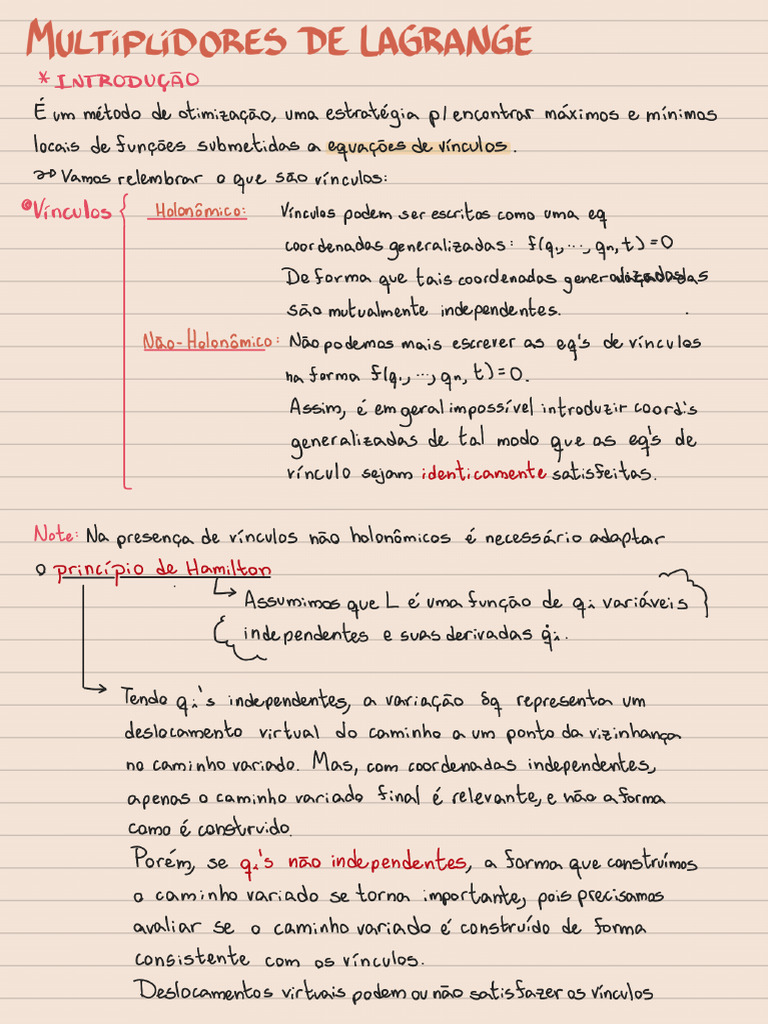 MULTIPLIDORES DE LAGRANGE
* INTRODUÇÃO
É um método de otimização, uma estratégia p/ encontrar máximos e mínimos
locais de funções submetidas a equações de vínculos.
Vamos relembrar o que são vínculos:
Vínculos { Holonômico: Vínculos podem ser escritos como uma eq
coordenadas generalizadas: f(q₁, ..., qn, t) = 0
De forma que tais coordenadas generalizadas
são mutualmente independentes.
Não-Holonômico: Não podemos mais escrever as eq's de vínculos
na forma f(q₁, ..., qn, t) = 0.
Assim, é em geral impossível introduzir coord's
generalizadas de tal modo que as eq's de
vínculo sejam identicamente satisfeitas.
Note: Na presença de vínculos não holonômicos é necessário adaptar
o princípio de Hamilton
Assumimos que L é uma função de qi variáveis
independentes e suas derivadas q̇i.
Tendo qi's independentes, a variação δq representa um
deslocamento virtual do caminho a um ponto da vizinhança
no caminho variado. Mas, com coordenadas independentes,
apenas o caminho variado final é relevante, e não a forma
como é construido.
Porém, se qi's não independentes, a forma que construímos
o caminho variado se torna importante, pois precisamos
avaliar se o caminho variado é construído de forma
consistente com os vínculos.
Deslocamentos virtuais podem ou não satisfazer os vínculos